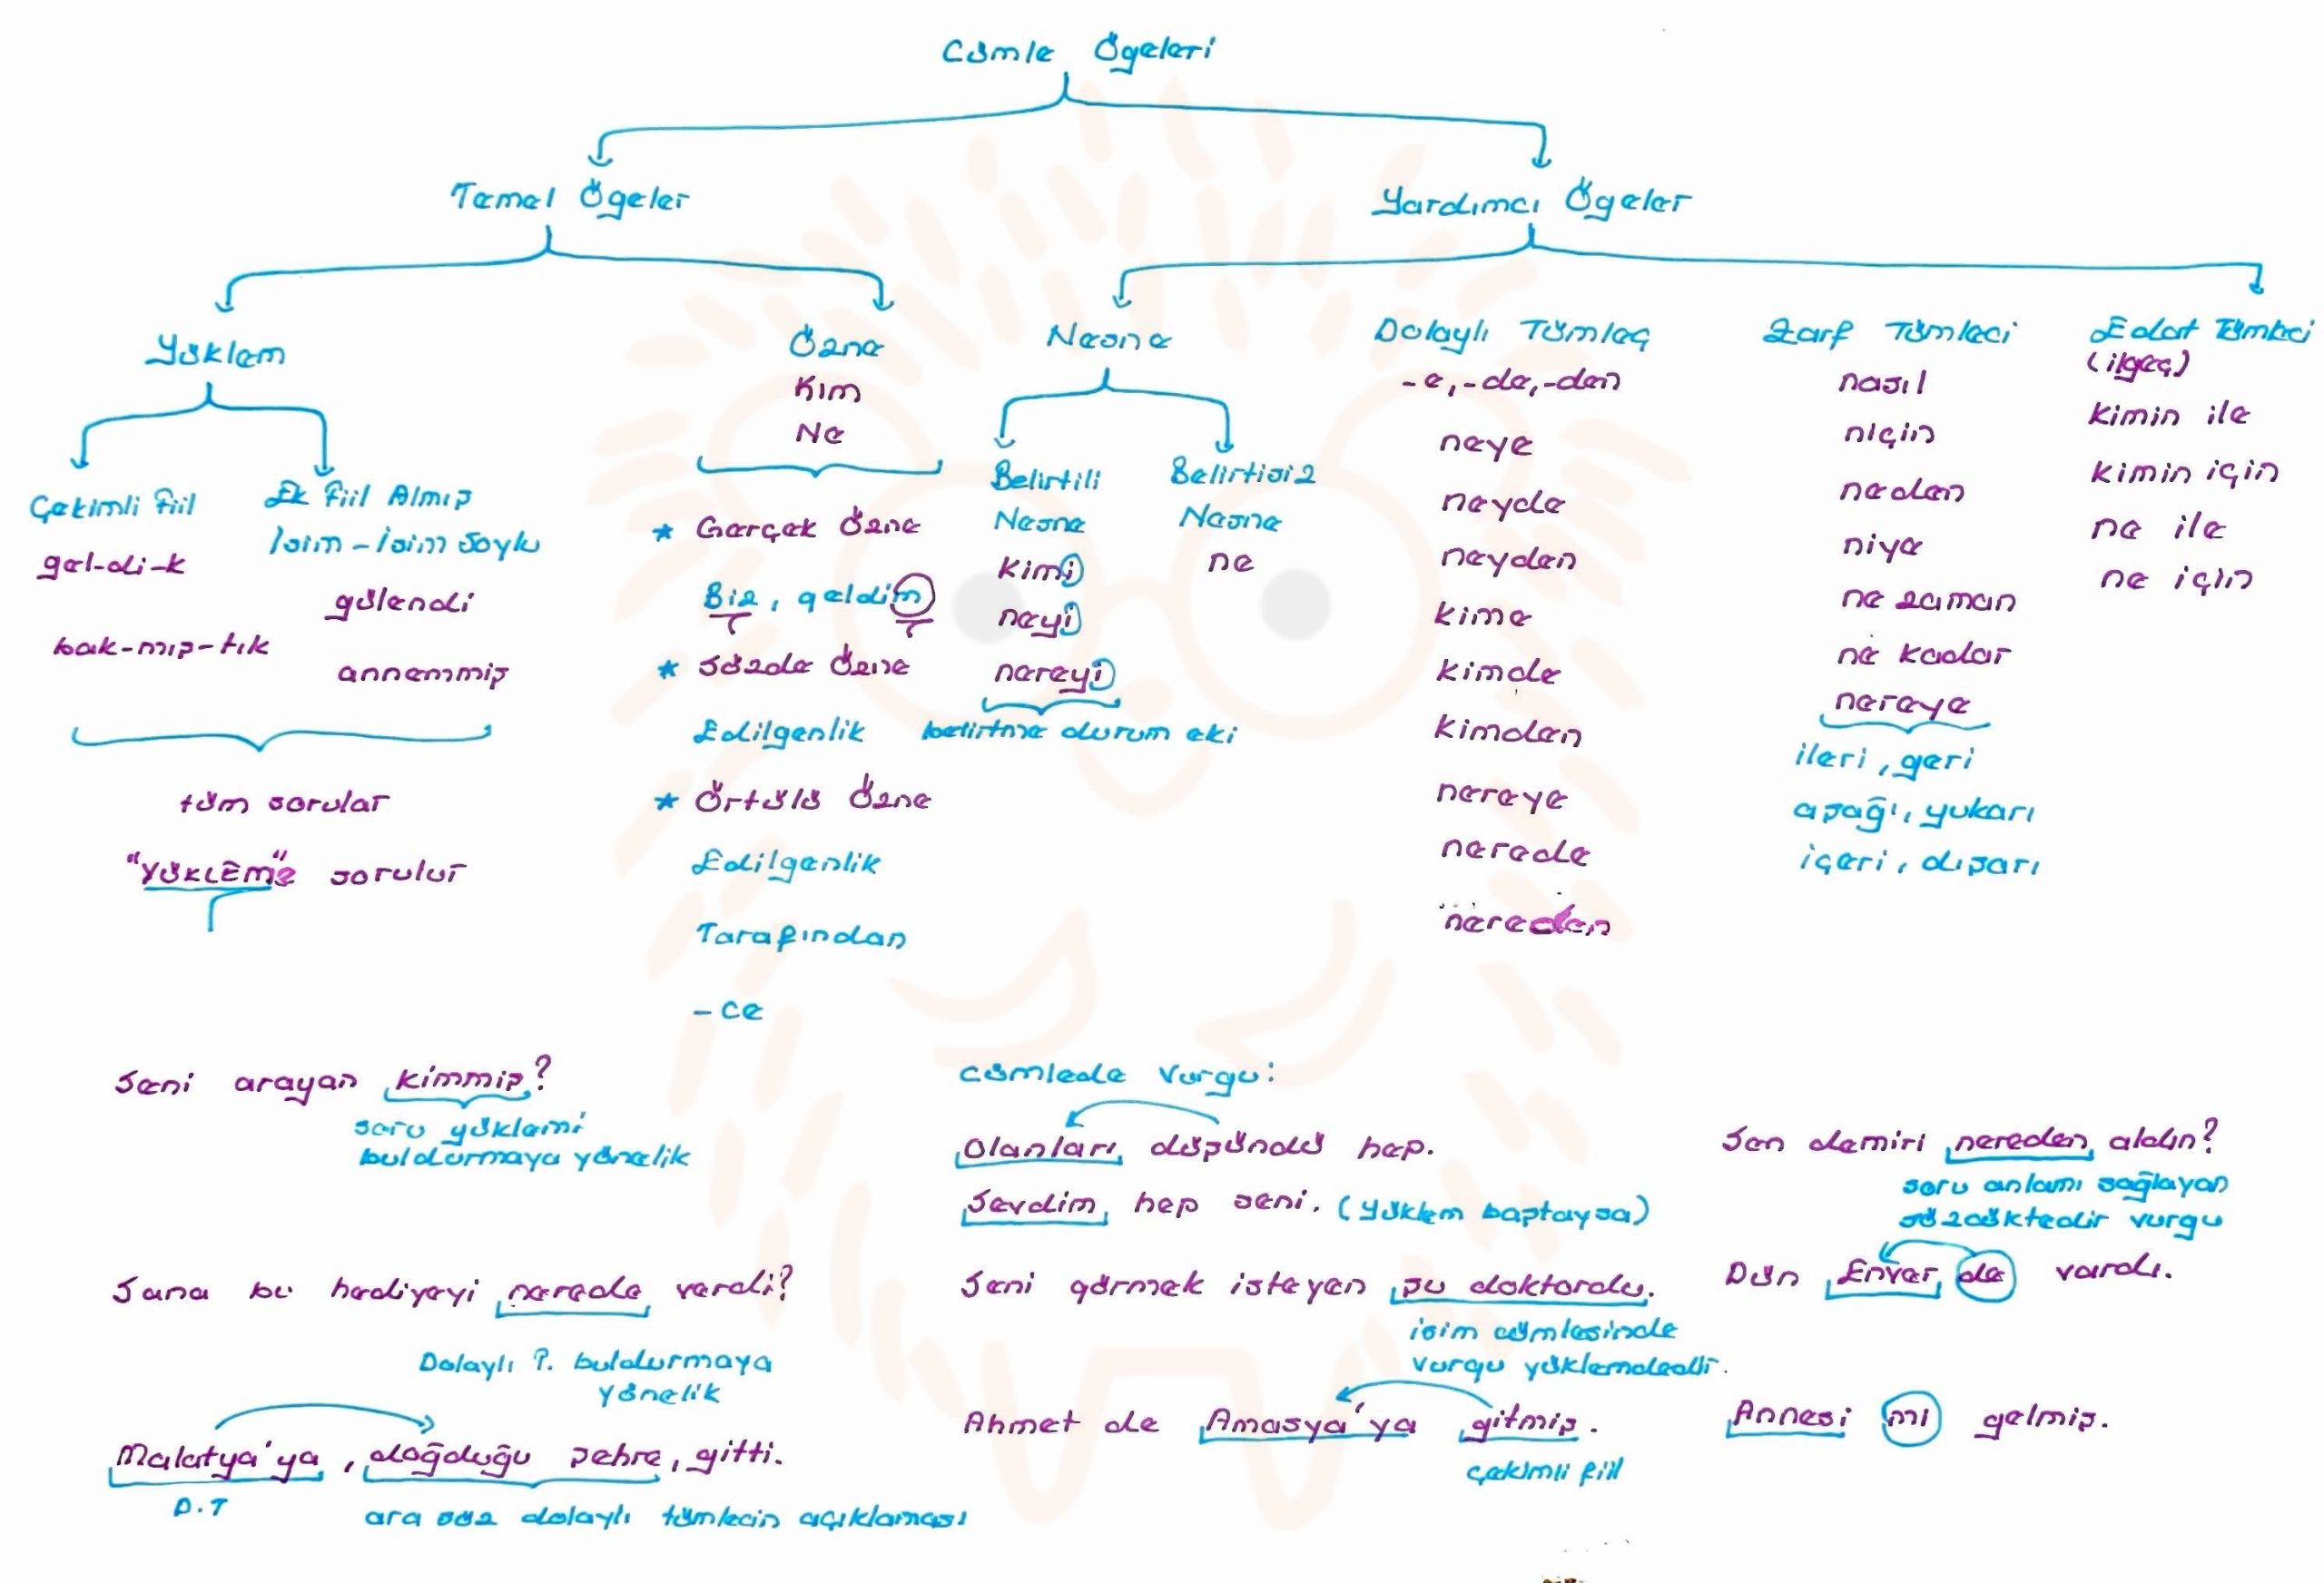 Cümle Ögeleri
Temel Ögeler
Yardımcı Ögeler
Yüklem
Çekimli fiil
gel-di-k
bak-mış-tık
Ek fiil Almış
İsim-İsim Soylu
gülendi
annemmiş
tüm sorular
"YÜKLEM"e sorulur
Özne
Kim
Ne
* Gerçek Özne
Biz, geldim
* Sözde Özne
Edilgenlik
* Örtülü Özne
Edilgenlik
Tarafından
-ce
Nesne
Belirtili
Nesne
kimi
neyi
nereyi
belirtme durum eki
Belirtisiz
Nesne
ne
Dolaylı Tümleç
-e,-de,-den
neye
neyde
neyden
kime
kimde
kimden
nereye
nerede
nereden
Zarf Tümleci
nasıl
niçin
neden
niye
ne zaman
ne kadar
nereye
ileri, geri
aşağı, yukarı
içeri, dışarı
Edat Tümleci
(ilgeç)
kimin ile
kimin için
ne ile
ne için
Seni arayan kimmiş?
soru yüklemi
buldurmaya yönelik
Sana bu hediyeyi nerede verdi?
Dolaylı T. buldurmaya
yönelik
Malatya'ya, doğduğu şehre, gitti.
D.T
ara söz dolaylı tümlecin açıklaması
Cümlede Vurgu:
Olanları düşündü hep.
Sevdim hep seni. (Yüklem baştaysa)
Seni görmek isteyen şu doktordu.
isim cümlesinde
vurgu yüklemdedir.
Ahmet de Amasya'ya gitmiş.
çekimli fiil
Sen demiri nereden aldın?
soru anlamı sağlayan
sözcüktedir vurgu
Dün Enver de vardı.
Annesi mi gelmiş.